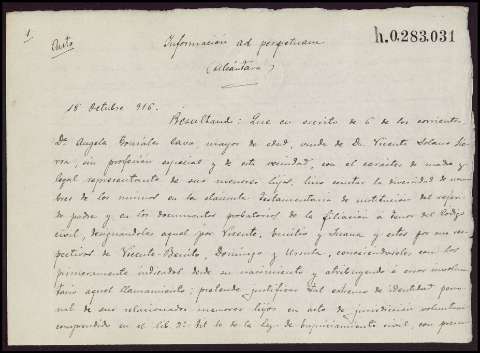 1
Auto
Información ad perpetuam
h.0.283.031
(Alcántara)
18 Octubre 916.
Resultando: Que en escrito de 6 de los corrientes
Dª Angela González Cava, mayor de edad, viuda de Dn Vicente Solano
sin profesión especial y de esta vecindad, con el carácter de madre y
legal representante de sus menores hijos, hizo constar la diversidad de nom-
bres de los mismos en la cláusula testamentaria de institución del
padre y en los documentos probatorios de la filiación a tenor del Código
civil, designándoles aquel por Vicente, Emilio y Juana y estos por sus res-
pectivos de Vicente Benito, Domingo y Ursula, conociéndoseles con los
primeramente indicados desde su nacimiento y atribuyendo á error involun-
tario aquel llamamiento; pretende justificar tal extremo de identidad perso-
nal de sus relacionados menores hijos en acto de jurisdicción voluntaria
comprendido en el lib. 3º tit. 10 de la Ley de Enjuiciamiento civil, con